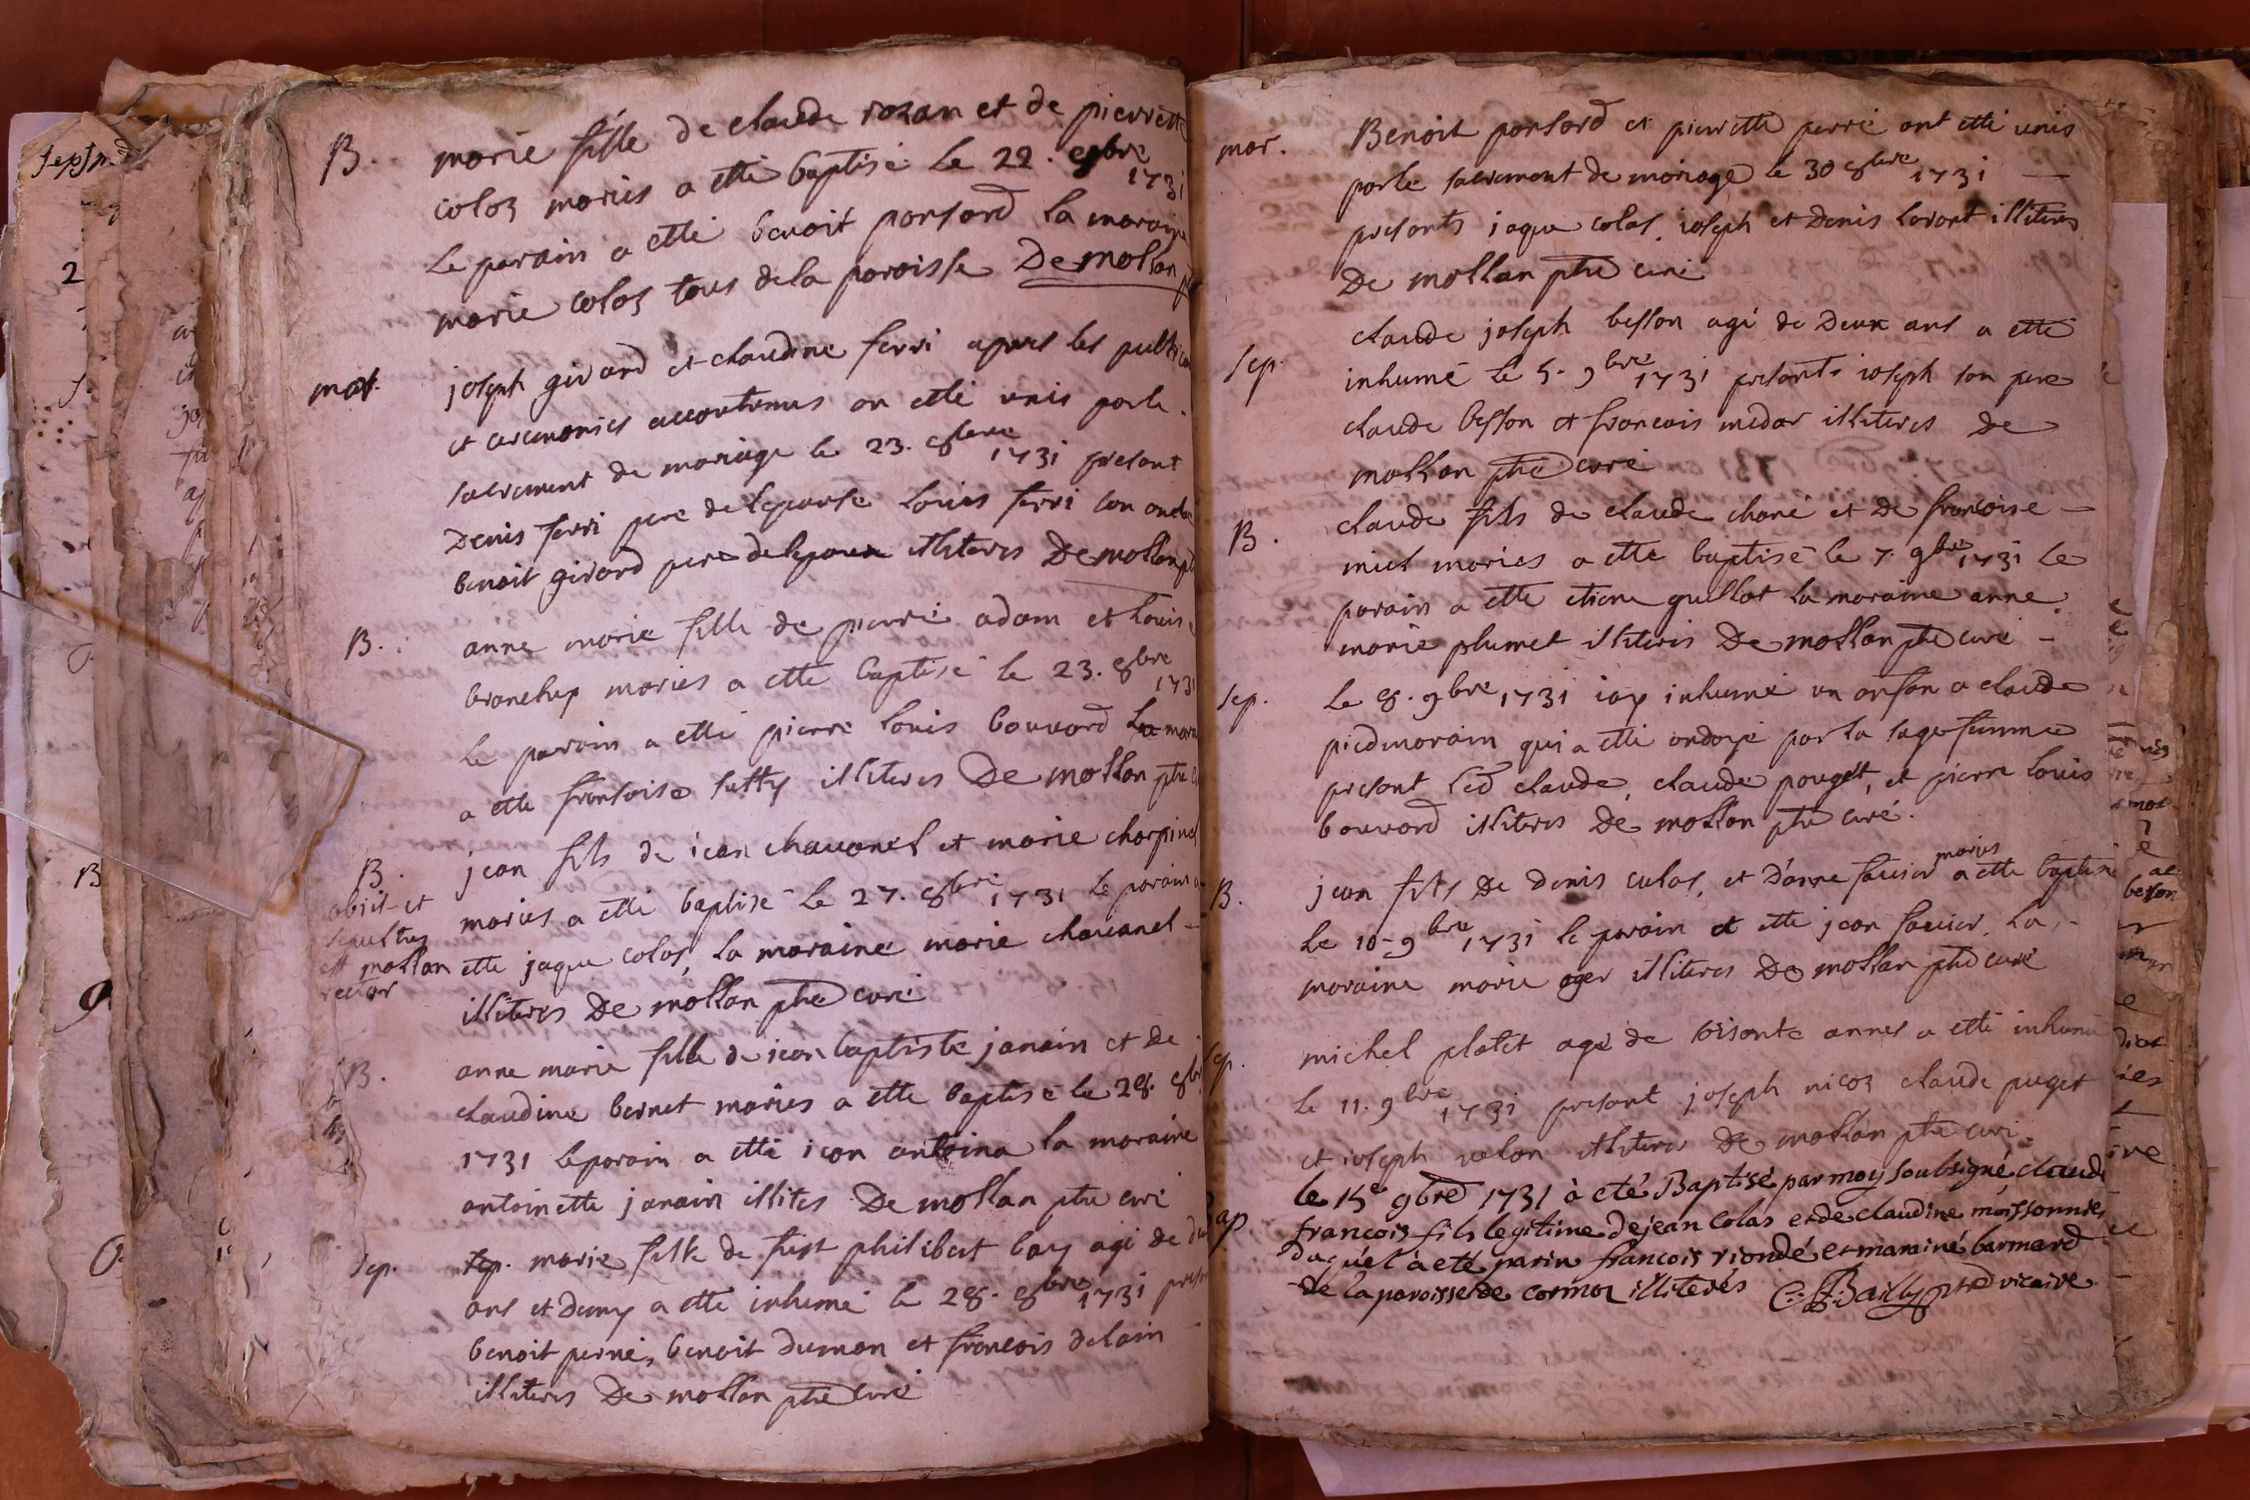 B. marie fille de claude rozan et de pierrette
coloz mariés a etté baptisé le 22. 8bre 1731
Le parain a etté benoit ponsard la maraine
marie coloz tous de la paroisse De mollan
mar. joseph girard et claudine ferri apres les publica
et ceremonies accoutumes on etté unis par le
sacrement de mariage le 23. 8bre 1731 présant
Denis ferri pere de lepouse Louis ferri son oncle
benoit girard pere de lepoux illiteres De mollan p
B. anne marie fille de pierre adam et Louise
mariés a etté baptisé le 23. 8bre 1731
le parain a etté pierre louis bouvard La mara
a etté fransoise illiteres De mollan ptre c
B. jean fils de jean chavanel et marie charpinel
obiit et mariés a etté baptisé le 27. 8bre 1731 le parain a
sepultus
est mollan etté jaque colas, la maraine marie chavanel
rector
illiteres De mollan ptre curé
B. anne marie fille de jean baptiste janain et de
claudine bernet mariés a etté baptisé le 28. 8bre
1731 le parain a etté jean antoina la maraine
antoinette janain illites De mollan ptre curé
Sep. marie fille de philibert bay agé de
ans et demy a etté inhumé le 28. 8bre 1731 present
benoit perné, benoit dumon et francois delain
illiteres De mollan ptre curé
mar. Benoit ponsard et pierrette perré ont etté unis
par le sacrement de mariage le 30 8bre 1731
présants jaque colas. joseph et Denis lorant illiteres
De mollan ptre curé
Sep. claude joseph besson agé de Deux ans a etté
inhumé le 5. 9bre 1731 présants joseph son pere
claude besson et francois medar illiteres De
mollan ptre curé
B. claude fils de claude chané et De francoise
miel mariés a etté baptisé le 7. 9bre 1731 le
parain a etté etiene gullot la maraine anne
marie plumet illiteres De mollan ptre curé
Sep. Le 8. 9bre 1731 iay inhumé un anfan a claude
piedmorain qui a etté ondoyé par la sage femme
présant led claude, claude pouget, et pierre louis
bouvard illiteres De mollan ptre curé.
B. jean fils De denis culas, et D'anne savier mariés a etté baptisé
Le 10. 9bre 1731 le parain a etté jean savier. La
maraine marie oger illiteres De mollan ptre curé
Sep. michel platet agé de soisante annes a etté inhumé
le 11. 9bre 1731 présant joseph nicoz claude puget
et joseph velon illiteres De mollan ptre curé
Bap. le 15e 9bre 1731 à eté Baptisé par moy soubsigné claude
francois fils legitime de jean Colas et de claudine moissonnier
duquel à eté parin francois riondé et marainé barmard
de la paroisse de cormoz illiterés C: J: Bailly ptre vicaire